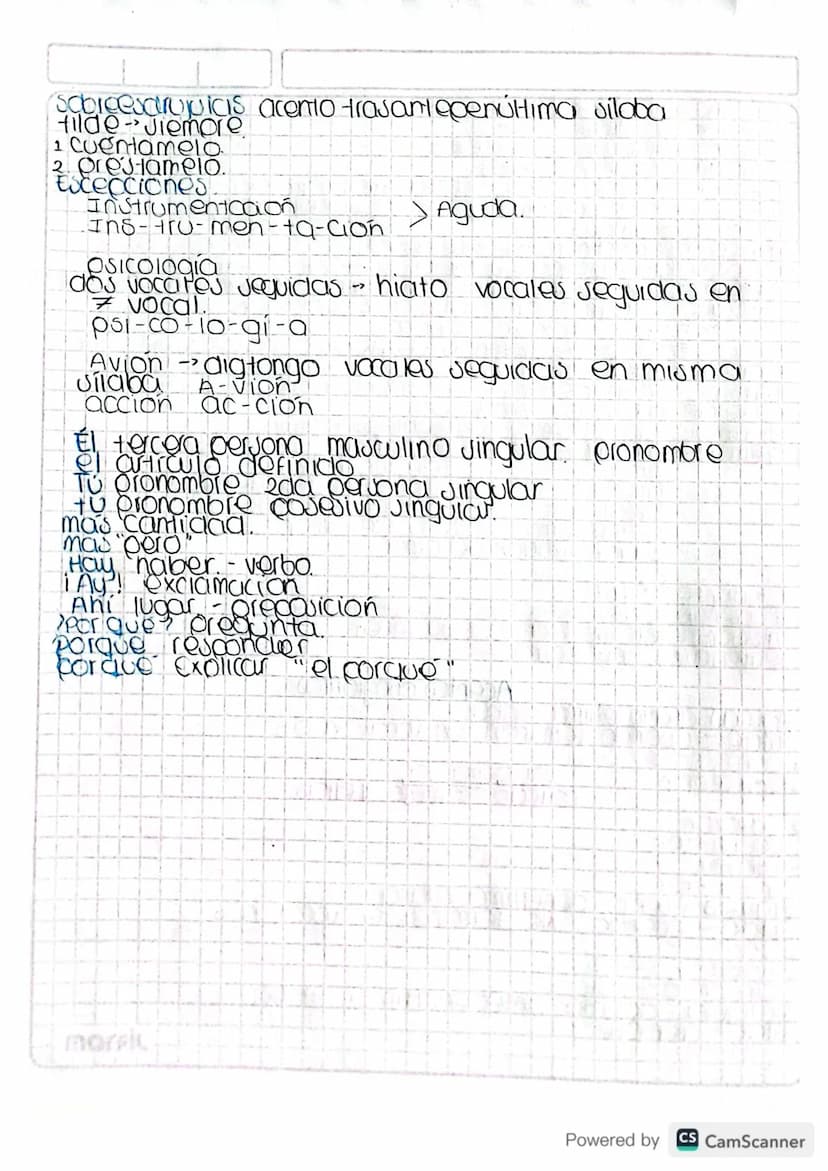 sobreesdrujulas acento trasantepenúltima sílaba
tilde → siempre
1 Cuéntamelo.
2. préstamelo.
Excepciones.
Instrumentación
Ins-tru-men-ta-ción > Aguda.
psicología
dos vocales seguidas → hiato vocales seguidas en
≠ vocal.
psi-co-lo-gí-a
Avión → digtongo vocales seguidas en misma
sílaba A-vión
acción ac-ción
Él tercera persona masculino singular. pronombre
el artículo definido
Tú pronombre 2da persona singular
tu pronombre posesivo singular.
más cantidad.
mas "pero"
Hay haber. - verbo.
¡Ay! exclamación
Ahí lugar - preposición
¿Por qué? pregunta.
porque responder
porqué explicar "el porqué"
marfil
Powered by CS CamScanner